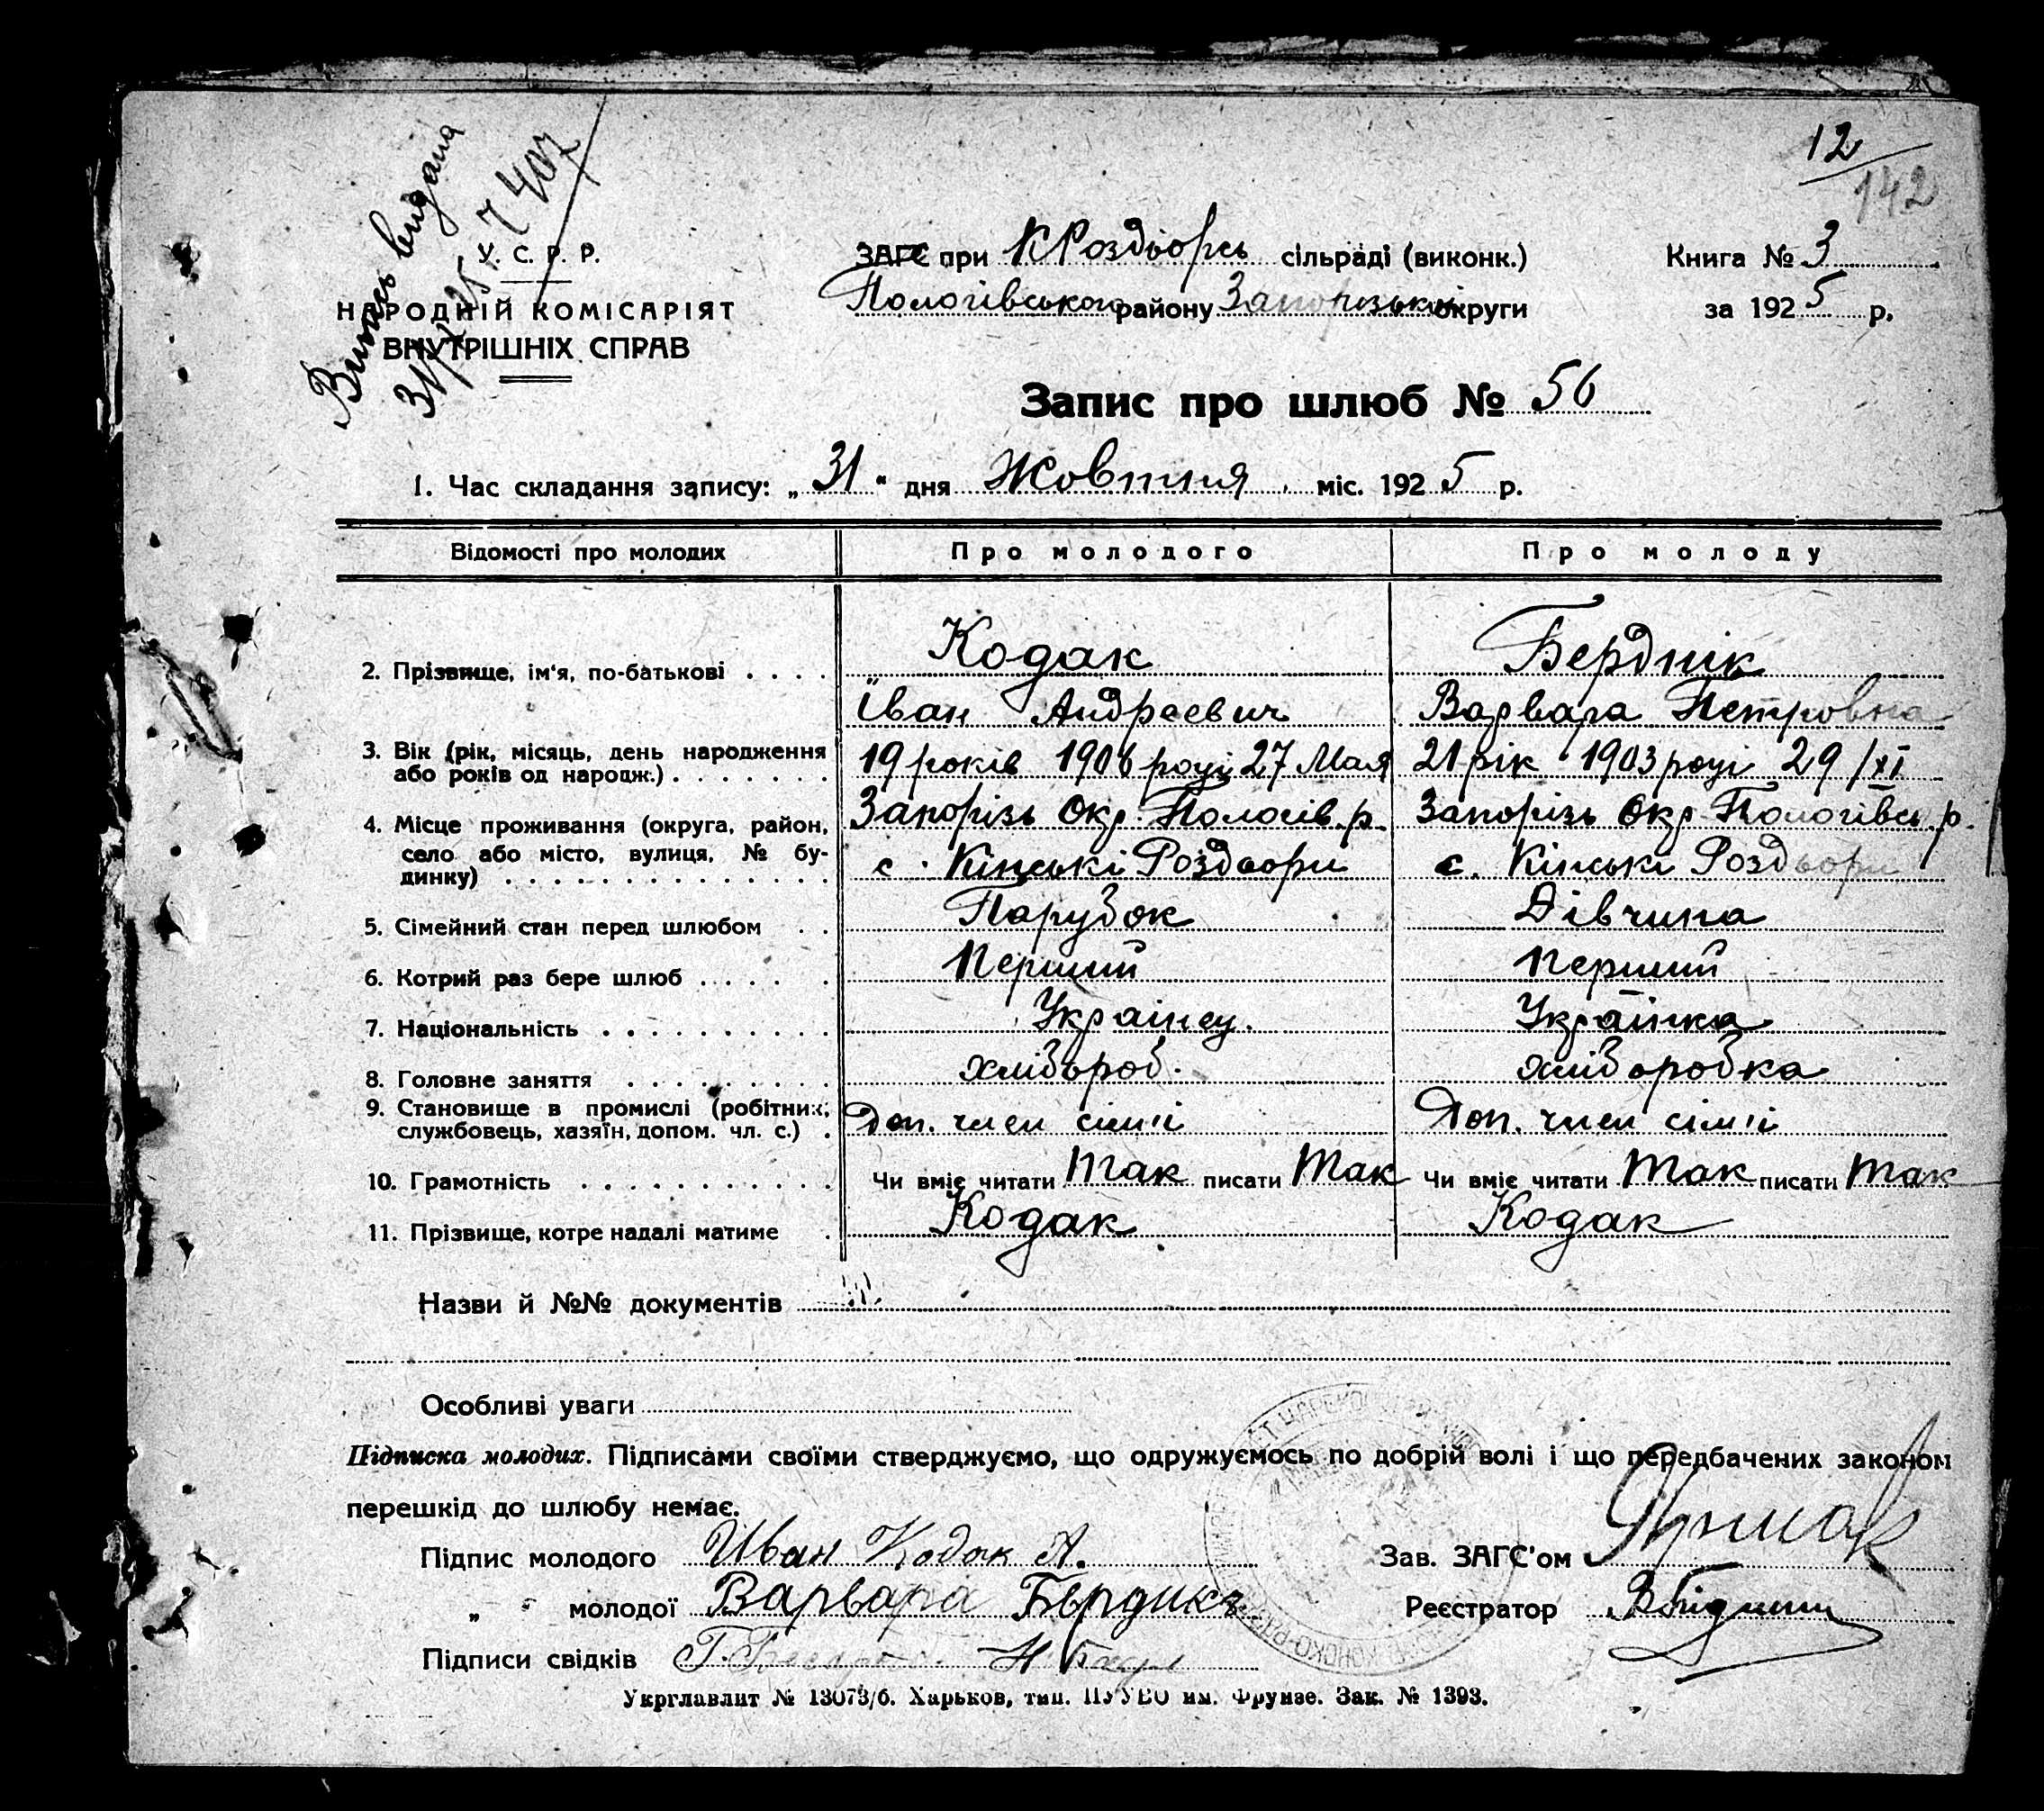 12
142
Випись видана
31/X 25 7 407
У. С. Р. Р.
НАРОДНІЙ КОМІСАРІЯТ
ВНУТРІШНІХ СПРАВ
ЗАГС при КРоздьорсь сільраді (виконк.)
Пологівського району Запорізької округи
Книга № 3
за 1925 р.
Запис про шлюб № 56
1. Час складання запису: „31“ дня Жовтня міс. 1925 р.
Відомості про молодих Про молодого Про молоду
Кодак Бердпік
2. Прізвище, ім'я, по-батькові
Іван Андреевич Варвара Петровна
3. Вік (рік, місяць, день народження
або років од народж.)
19 років 1906 році 27 Мая 21 рік 1903 році 29/XI
4. Місце проживання (округа, район,
село або місто, вулиця, № бу-
динку)
Запорізь Окр. Пологів. р. Запорізь Окр Пологівсь. р.
с. Кінські Роздоори с. Кінські Роздьори
5. Сімейний стан перед шлюбом Парубок Дівчина
6. Котрий раз бере шлюб Перший Перший
7. Національність Українец. Українка
8. Головне заняття хлібороб. хліборобка
9. Становище в промислі (робітник,
службовець, хазяїн, допом. чл. с.)
Доп. член сім'ї Доп. член сім'ї
10. Грамотність Чи вміє читати Так писати Так Чи вміє читати Так писати Так
11. Прізвище, котре надалі матиме Кодак Кодак
Назви й №№ документів
Особливі уваги
Підписка молодих. Підписами своїми стверджуємо, що одружуємось по добрій волі і що передбачених законом
перешкід до шлюбу немає.
Підпис молодого Иван Кодак А. Зав. ЗАГС'ом
„ молодої Варвара Бердикъ Реєстратор
Підписи свідків
Укрглавлит № 13073/б. Харьков, тип. ПУУВО им. Фрунзе. Зак. № 1393.